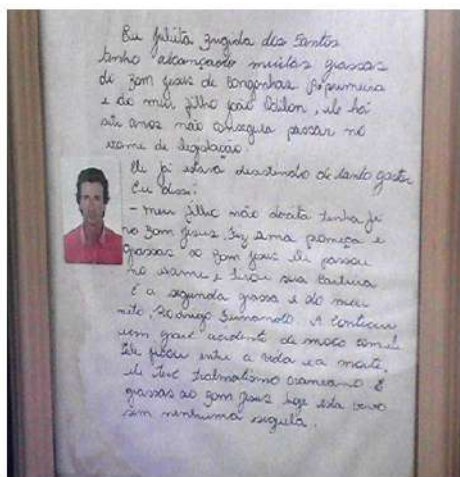 Eu Julieta Zugida dos Santos
tenho alcançado muitas grassas
de Bom Jesus de Congonhas. A primera
e do meu filho joão Odilon, ele há
sete anos não conseguia passar no
exame de legislação
Ele já estava desistindo de tanto gastar
Eu disse:
- meu filho não desista tenha fé
no Bom Jesus. Fez uma promeça e
grassas ao Bom Jesus ele passou
no exame e tirou sua carteira
E a segunda grassa e do meu
neto, Rodrigo Fernando. A conticeu
um grave acidente de moto com ele
Ele ficou entre a vida e a morte,
ele teve tralmatismo crameano E
grassas ao Bom Jesus hoje esta vivo
sem nenhuma seguela.